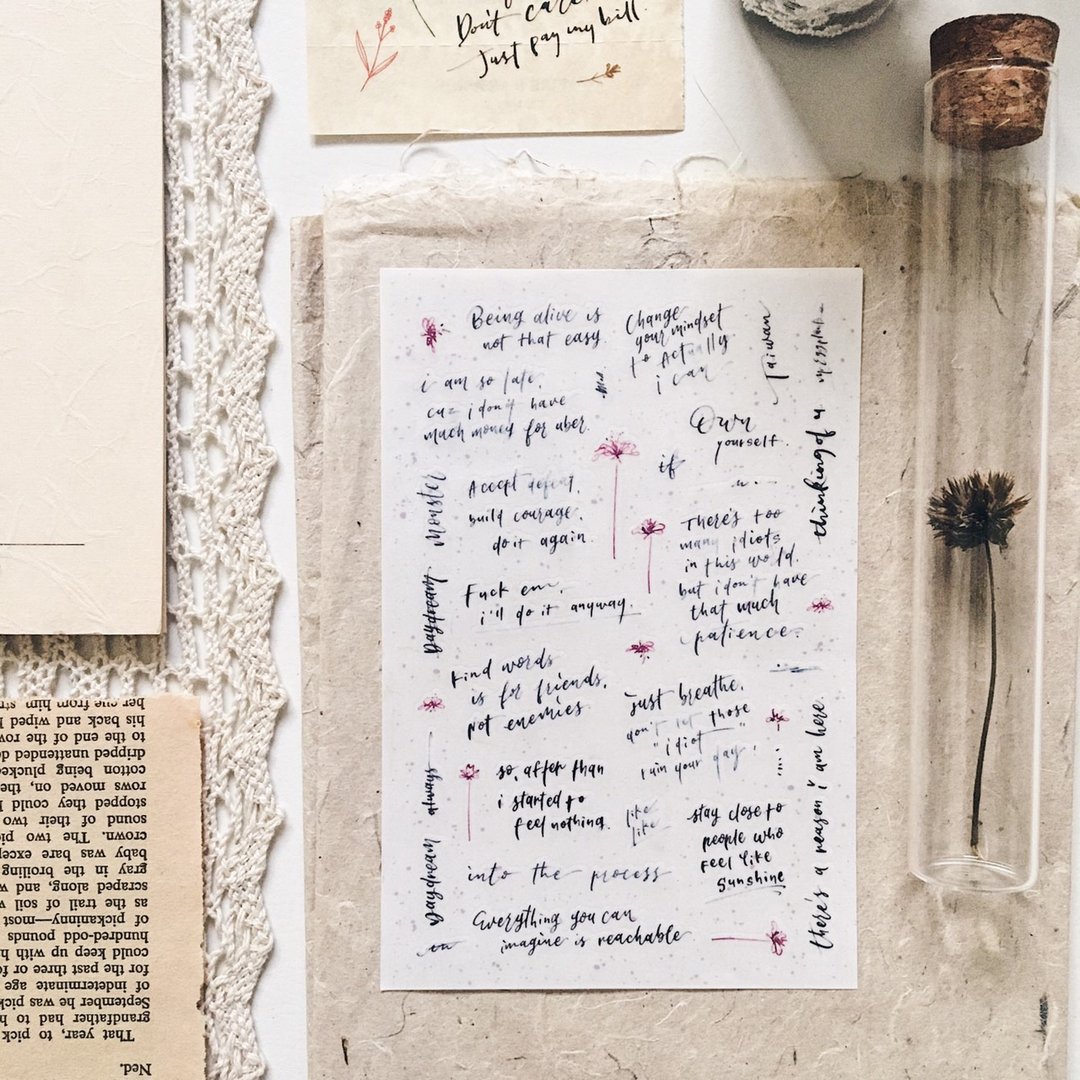 Don't care.
Just pay my bill.
Being alive is
not that easy.
Change
your mindset
to Actually
i can
Taiwan
i am so late,
cuz i don't have
much money for uber.
Own
yourself.
if
thinking of u
Monster
Accept defeat,
build courage,
do it again.
There's too
many idiots
in this world.
but i don't have
that much
patience.
Daydream
Fuck em,
i'll do it anyway.
Kind words
is for friends,
not enemies
just breathe,
don't let those
"idiot"
ruin your day!
there's a reason i am here
always
so, after than
i started to
feel nothing.
like
like
stay close to
people who
feel like
sunshine
Daydream
into the process
Everything you can
imagine is reachable
Ned.
That year, to pick
grandfather had to h
September he was pick
of indeterminate age
for the past three or fo
could keep up with h
hundred-odd pounds
of pickaninny—most
as the trail of soil w
scraped along, and w
gray in the broiling
baby was bare excep
crown. The two pic
sound of their two
stopped they could h
rows moved on, the
cotton being plucked
dripped unattended do
to the end of the row
his back and wiped h
her cue from him str